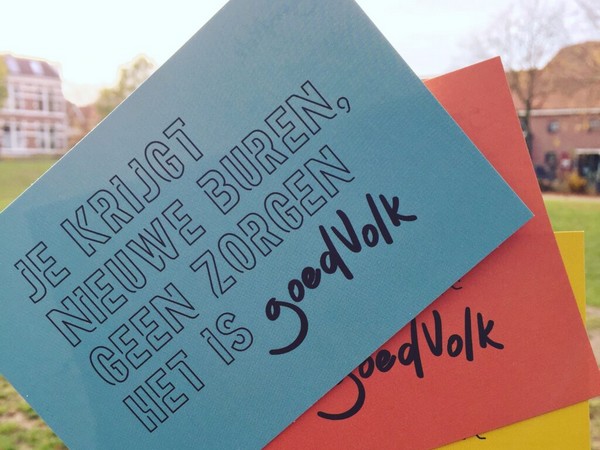 JE KRIJGT
NIEUWE BUREN,
GEEN ZORGEN
HET IS goedVolk
goedVolk